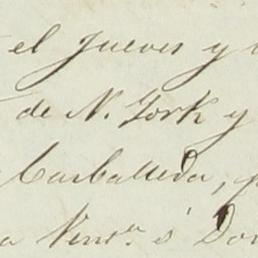 el Jueves y
de N. York y
Carballeda,
a Vent.ª ó Don